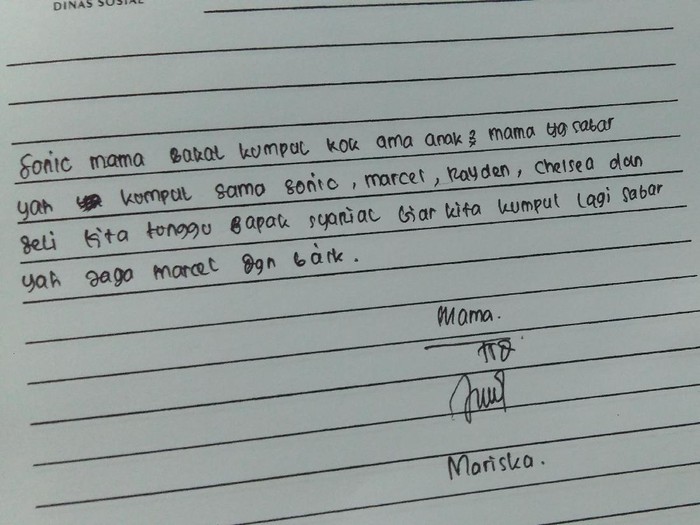 DINAS SOSIAL
Sonic mama bakal kumpul kok ama anak2 mama yg sabar
yah kumpul sama sonic, marcel, Rayden, chelsea dan
seli kita tonggu bapak syarial biar kita kumpul lagi sabar
yah jaga marcel dgn baik.
Mama.
ttd
Mariska.